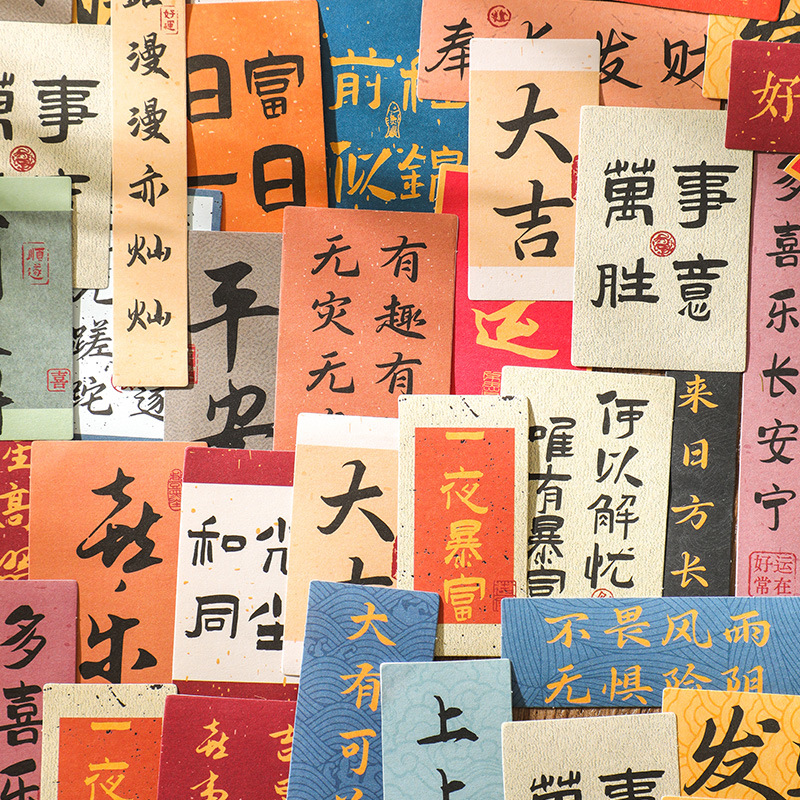 漫漫亦灿灿
好運
事
萬
富
日
日一
前程
似錦
奉
发财
大吉
好
萬事
胜意
多喜乐长安宁
好运
常在
順遂
喜
蹉跎
遂
平安
有趣有
无灾无
运
何以解忧
唯有暴
来日方长
生高
喜乐
和光
同尘
大
一夜暴富
不畏风雨
无惧险阻
多喜乐
一夜
喜
吉
大有可
上上
萬事
发